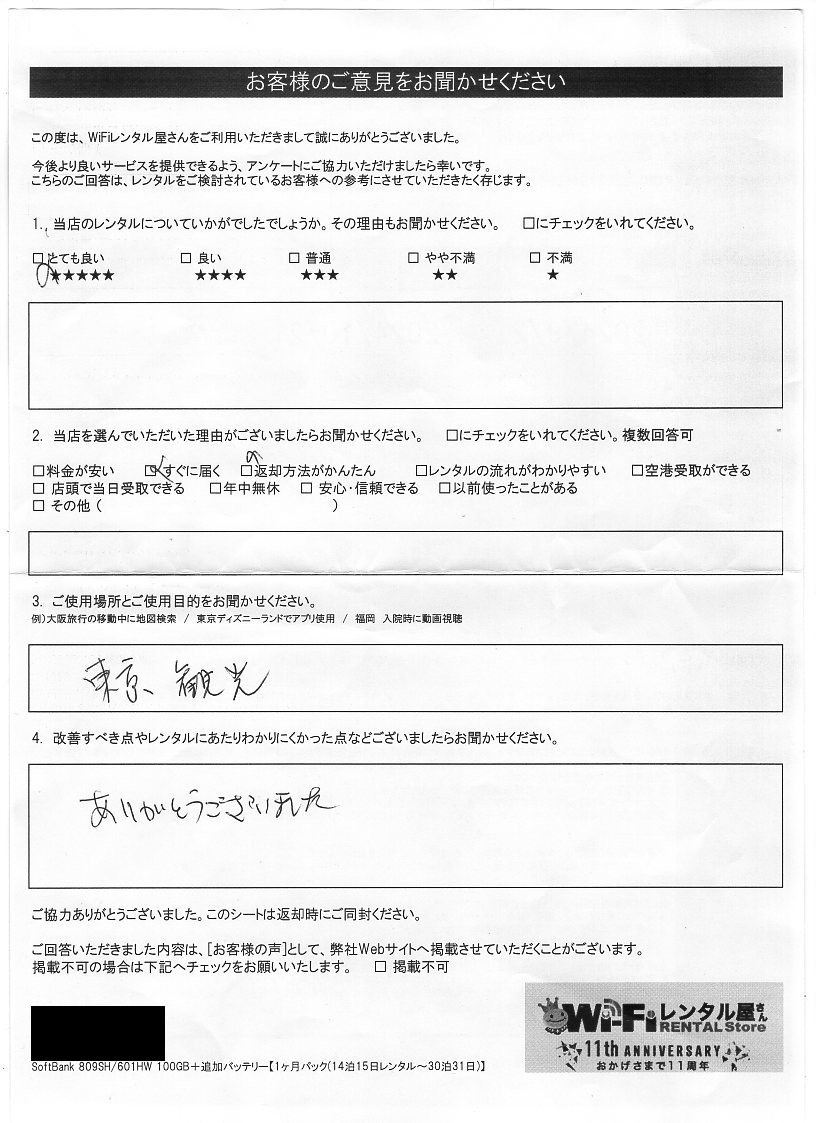 お客様のご意見をお聞かせください
この度は、WiFiレンタル屋さんをご利用いただきまして誠にありがとうございました。
今後より良いサービスを提供できるよう、アンケートにご協力いただけましたら幸いです。
こちらのご回答は、レンタルをご検討されているお客様への参考にさせていただきたく存じます。
1. 当店のレンタルについていかがでしたでしょうか。その理由もお聞かせください。 □にチェックをいれてください。
□とても良い □ 良い □ 普通 □ やや不満 □ 不満
★★★★★ ★★★★ ★★★ ★★ ★
2. 当店を選んでいただいた理由がございましたらお聞かせください。 □にチェックをいれてください。複数回答可
□料金が安い □すぐに届く □返却方法がかんたん □レンタルの流れがわかりやすい □空港受取ができる
□ 店頭で当日受取できる □年中無休 □ 安心・信頼できる □以前使ったことがある
□ その他 ( )
3. ご使用場所とご使用目的をお聞かせください。
例)大阪旅行の移動中に地図検索 / 東京ディズニーランドでアプリ使用 / 福岡 入院時に動画視聴
東京、観光
4. 改善すべき点やレンタルにあたりわかりにくかった点などございましたらお聞かせください。
ありがとうございました
ご協力ありがとうございました。このシートは返却時にご同封ください。
ご回答いただきました内容は、[お客様の声]として、弊社Webサイトへ掲載させていただくことがございます。
掲載不可の場合は下記へチェックをお願いいたします。 □ 掲載不可
WiFiレンタル屋さん
RENTAL Store
11th ANNIVERSARY
おかげさまで11周年
SoftBank 809SH/601HW 100GB+追加バッテリー【1ヶ月パック(14泊15日レンタル～30泊31日)】